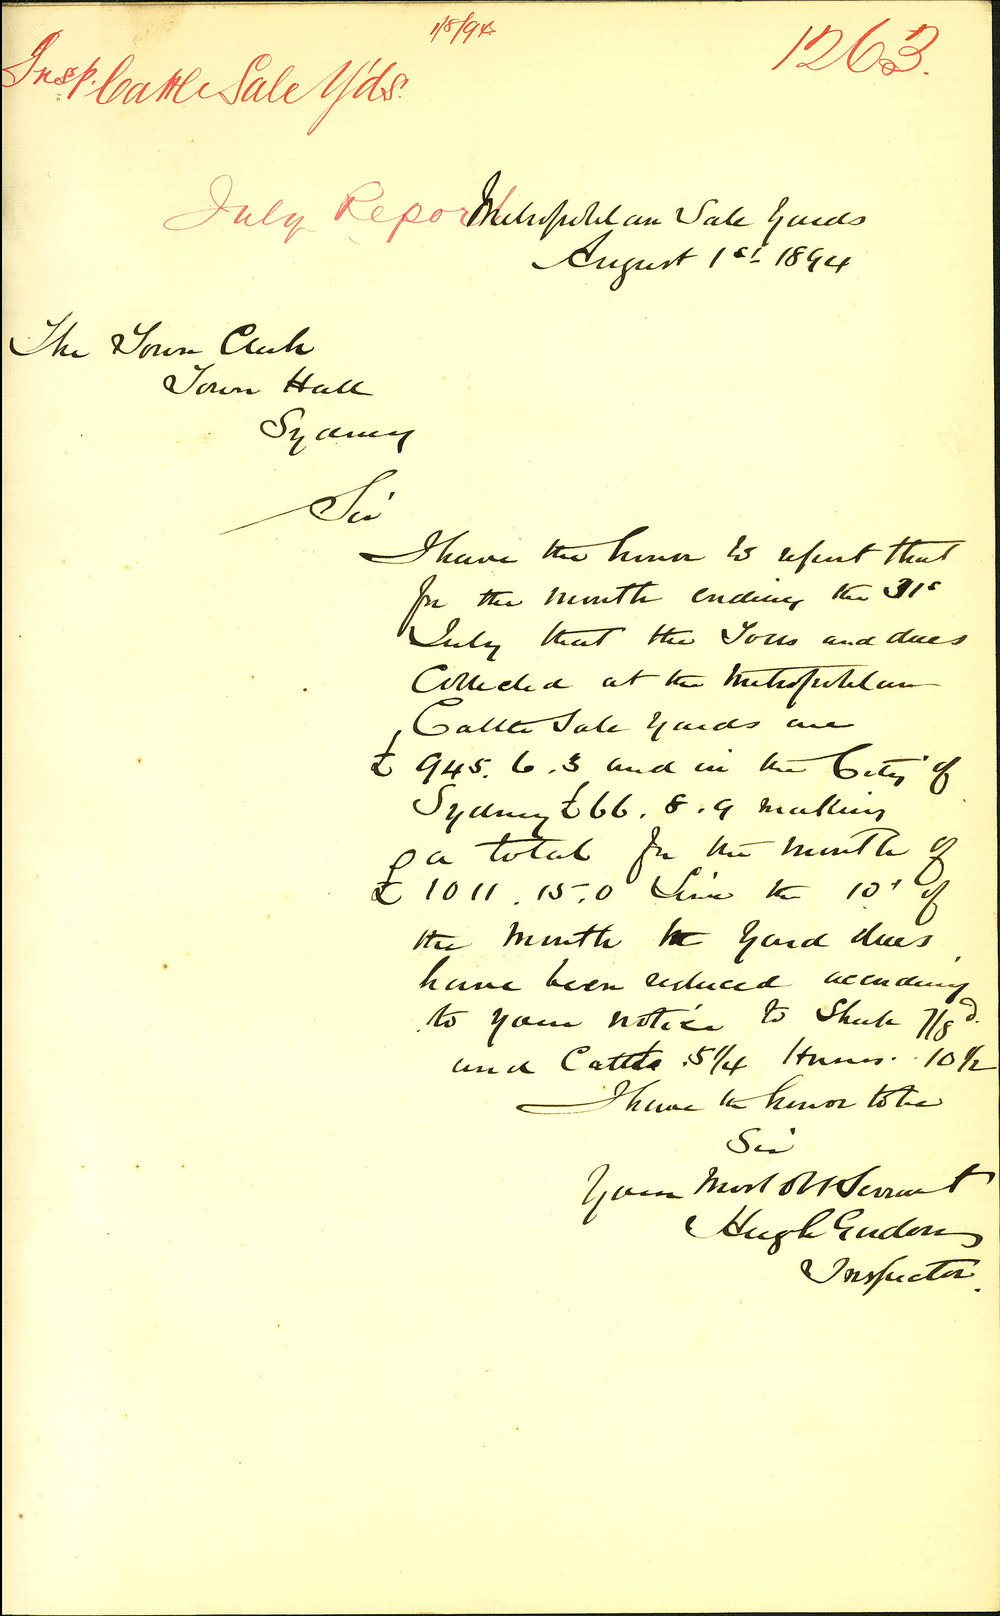 1/8/94
1263.
Insp. Cattle Sale Y'ds.
July Report
Metropolitan Sale Yards
August 1st 1894
The Town Clerk
Town Hall
Sydney
Sir
I have the honor to report that
for the month ending the 31s
July that the Tolls and dues
Collected at the Metropolitan
Cattle Sale Yards are
£ 945. 6. 3 and in the City of
Sydney £66. 8. 9 making
a total for the month of
£ 1011. 15. 0 Since the 10t of
the month the Yard dues
have been reduced according
to your notice to Sheep 7/8d.
and Cattle 5 1/4 Horses. 10 1/2
I have the honor to be
Sir
Your Most Obt Servant
Hugh
Inspector.